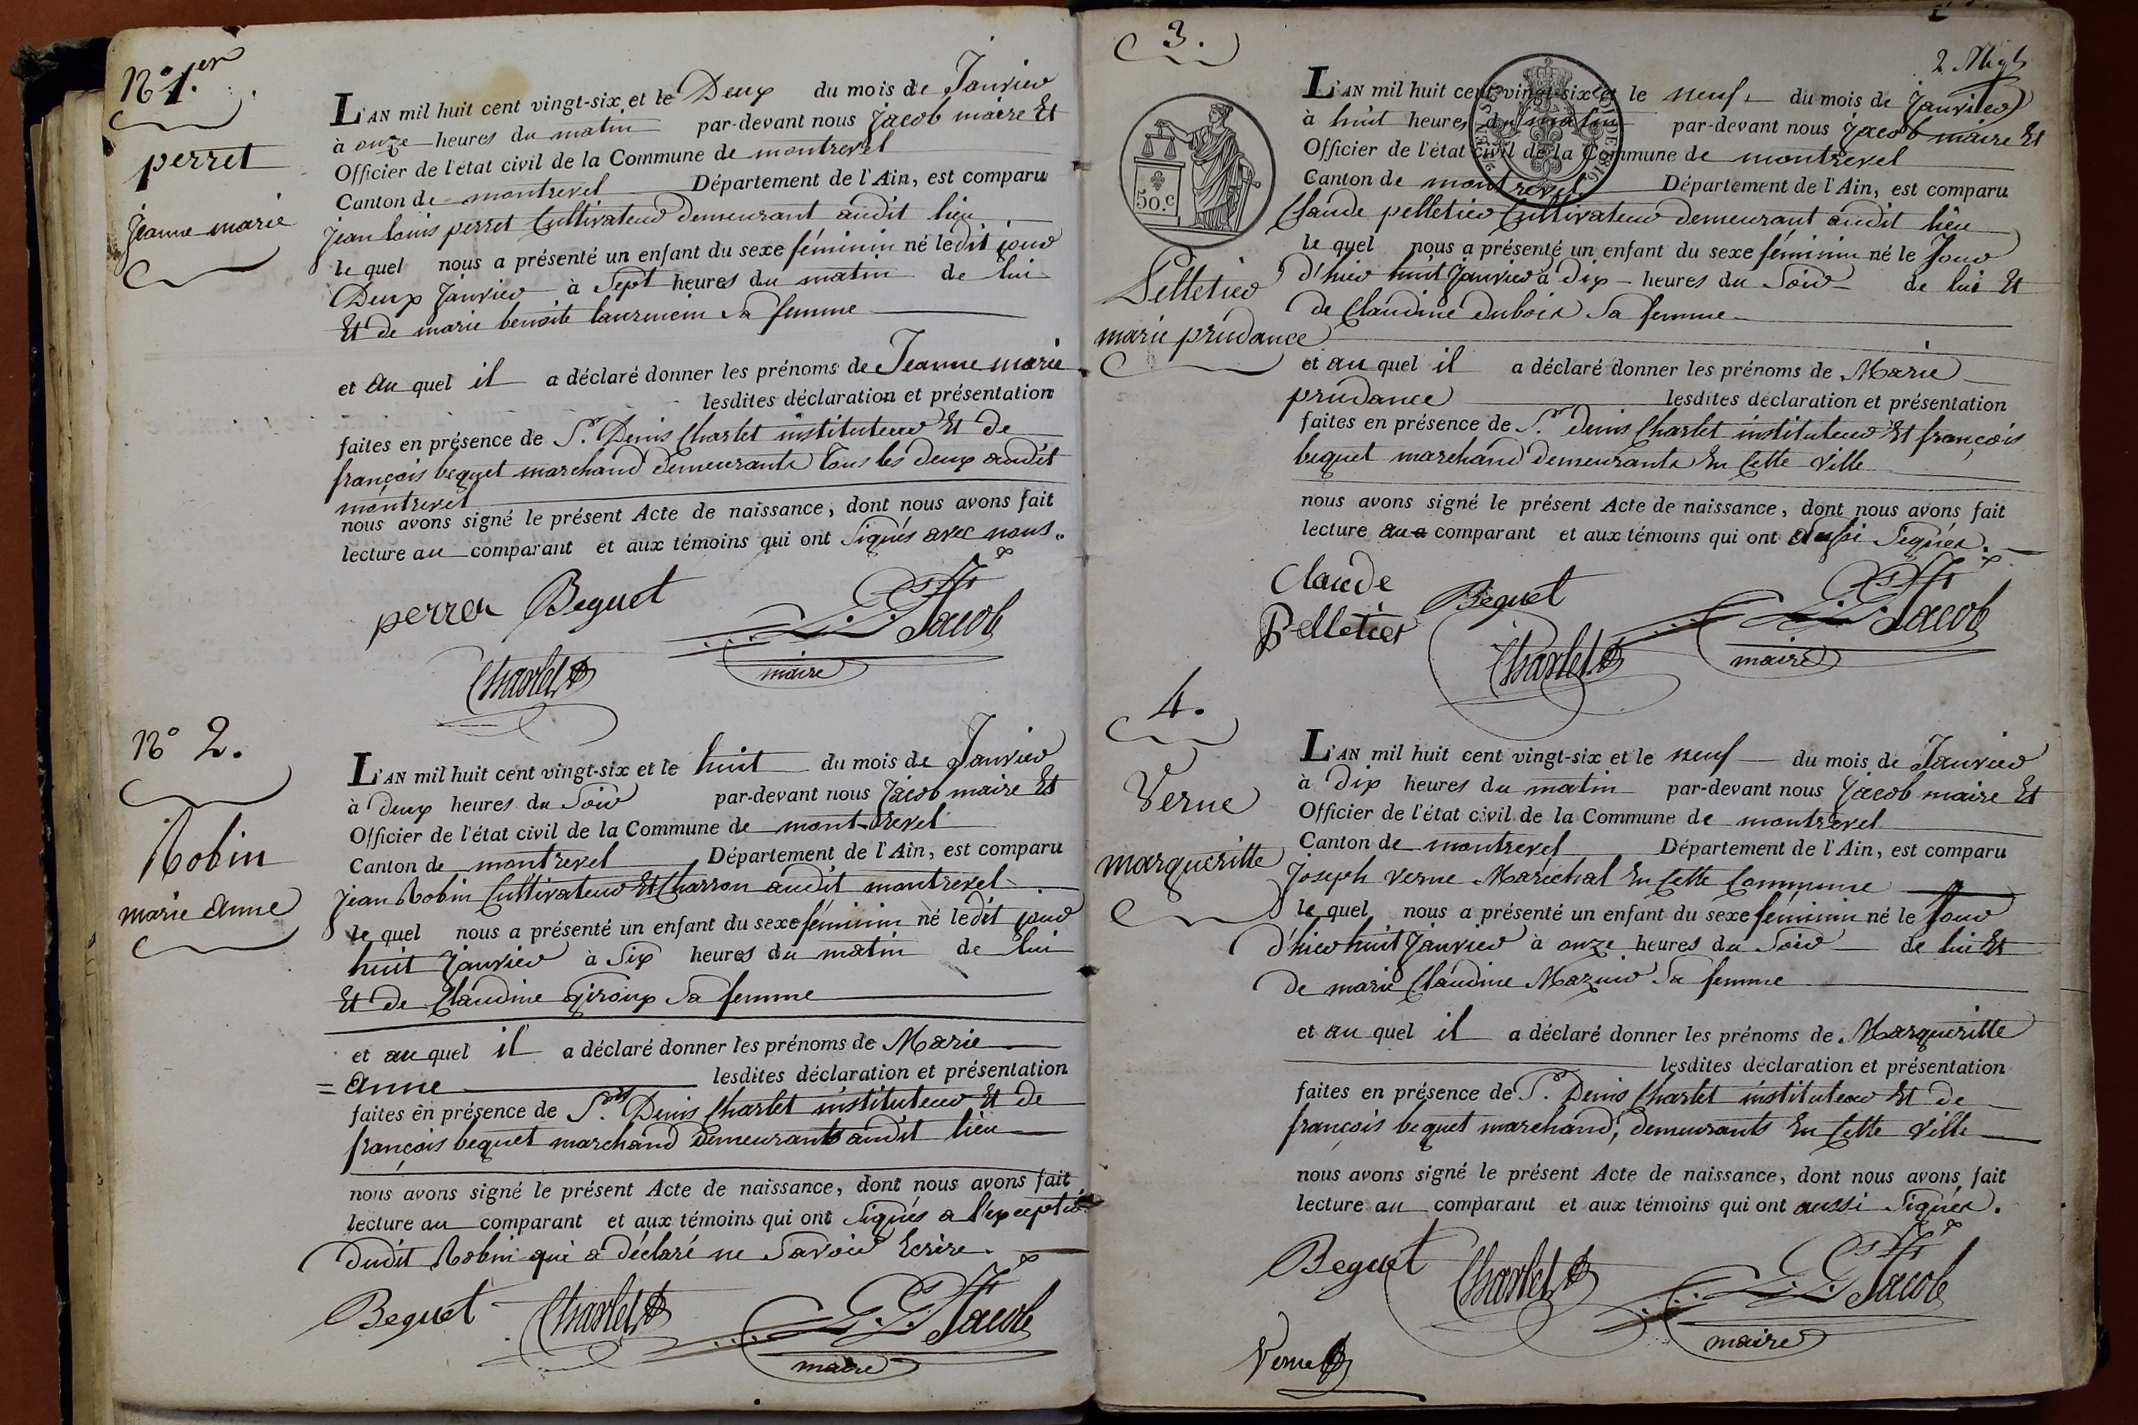 N° 1.er
perret
jeanne marie
L'AN mil huit cent vingt-six et le Deux du mois de Janvier
à onze heures du matin par-devant nous jacob maire Et
Officier de l'état civil de la Commune de montrevel
Canton de montrevel Département de l'Ain, est comparu
jean louis perret Cultivateur demeurant audit lieu
le quel nous a présenté un enfant du sexe féminin né ledit jour
Deux janvier à Sept heures du matin de lui
Et de marie benoite sa femme
et au quel il a déclaré donner les prénoms de Jeanne marie
lesdites déclaration et présentation
faites en présence de Sr. Denis Charlet instituteur Et de
françois bequet marchand demeurants tous les deux audit
montrevel
nous avons signé le présent Acte de naissance, dont nous avons fait
lecture au comparant et aux témoins qui ont Signés avec nous.
perret Bequet
Jacob
Charlet
maire
N° 2.
Robin
marie anne
L'AN mil huit cent vingt-six et le huit du mois de Janvier
à deux heures du Soir par-devant nous jacob maire Et
Officier de l'état civil de la Commune de montrevel
Canton de montrevel Département de l'Ain, est comparu
jean Robin Cultivateur Et Charron audit montrevel
le quel nous a présenté un enfant du sexe féminin né ledit jour
huit janvier à Six heures du matin de lui
Et de Claudine Giroux sa femme
et au quel il a déclaré donner les prénoms de Marie
= anne lesdites déclaration et présentation
faites en présence de Srs. Denis Charlet instituteur Et de
françois bequet marchand demeurants audit lieu
nous avons signé le présent Acte de naissance, dont nous avons fait
lecture au comparant et aux témoins qui ont Signés a l'exception
dudit Robin qui a déclaré ne Savoir Ecrire.
Bequet Charlet Jacob
maire
3.
50.c
Pelletier
marie prudance
L'AN mil huit cent vingt-six et le neuf du mois de janvier
à huit heures du matin par-devant nous jacob maire Et
Officier de l'état civil de la Commune de montrevel
Canton de montrevel Département de l'Ain, est comparu
Claude pelletier Cultivateur demeurant audit lieu
le quel nous a présenté un enfant du sexe féminin né le Jour
d'hier huit janvier à dix heures du Soir de lui Et
de Claudine dubois Sa femme
et au quel il a déclaré donner les prénoms de Marie
prudance lesdites déclaration et présentation
faites en présence de Sr. Denis Charlet instituteur Et françois
bequet marchand demeurants En Cette Ville
nous avons signé le présent Acte de naissance, dont nous avons fait
lecture au comparant et aux témoins qui ont aussi Signés.
Claude
Pelletier
Bequet
Jacob
Charlet
maire
4.
Verne
margueritte
L'AN mil huit cent vingt-six et le neuf du mois de Janvier
à dix heures du matin par-devant nous jacob maire Et
Officier de l'état civil de la Commune de montrevel
Canton de montrevel Département de l'Ain, est comparu
Joseph Verne Maréchal En Cette Commune
le quel nous a présenté un enfant du sexe féminin né le Jour
d'hier huit janvier à onze heures du Soir de lui Et
de marie Claudine Mazuir Sa femme
et au quel il a déclaré donner les prénoms de Margueritte
lesdites déclaration et présentation
faites en présence de Sr. Denis Charlet instituteur Et de
françois bequet marchand, demeurants En Cette Ville
nous avons signé le présent Acte de naissance, dont nous avons fait
lecture au comparant et aux témoins qui ont aussi Signés.
Bequet Charlet Jacob
maire
Verne